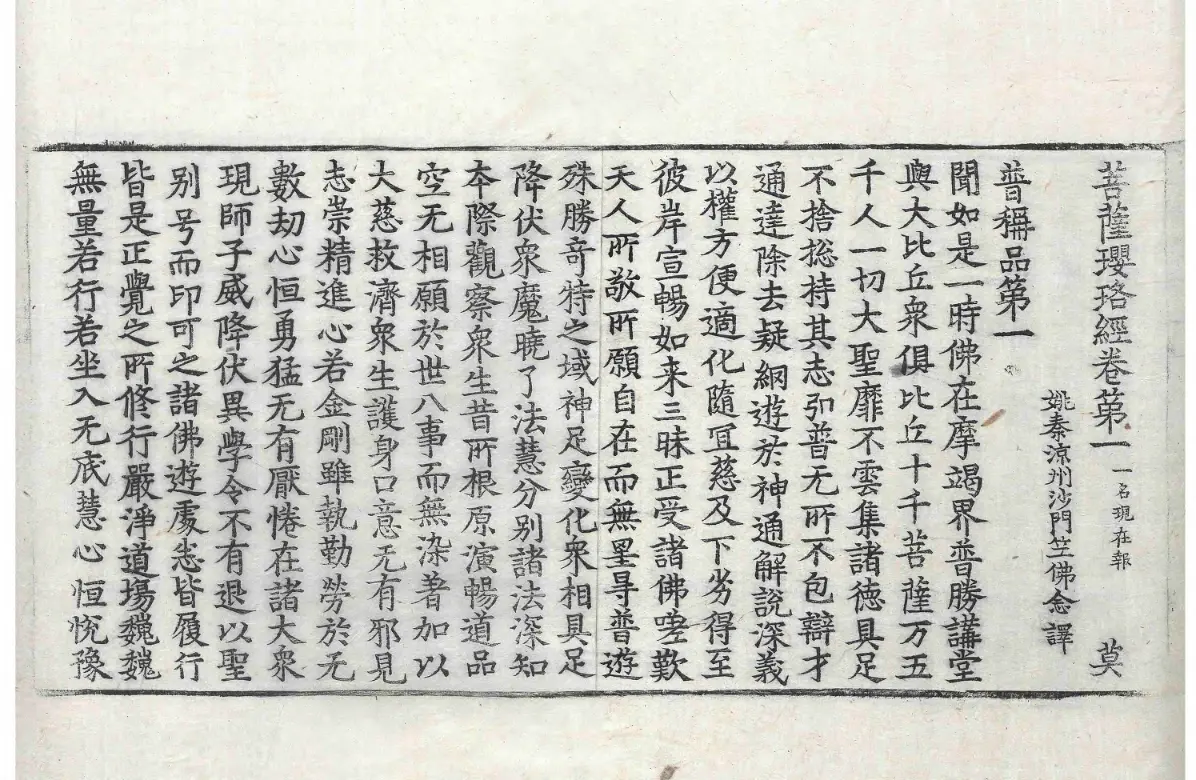 菩薩瓔珞經卷第一 一名現在報 莫
姚秦涼州沙門竺佛念譯
普稱品第一
聞如是一時佛在摩竭界普勝講堂
與大比丘衆俱比丘十千菩薩万五
千人一切大聖靡不雲集諸德具足
不捨捴持其志弘普无所不包辯才
通達除去疑網遊於神通解說深義
以權方便適化隨冝慈及下劣得至
彼岸宣暢如来三昧正受諸佛嗟歎
天人所敬所願自在而無罣㝵普遊
殊勝奇特之域神足變化衆相具足
降伏衆魔曉了法慧分别諸法深知
本際觀察衆生昔所根原演暢道品
空无相願於世八事而無染著加以
大慈救濟衆生護身口意无有邪見
志崇精進心若金剛雖執勤勞於无
數劫心恒勇猛无有厭惓在諸大衆
現師子威降伏異學令不有退以聖
别号而印可之諸佛遊處悉皆履行
皆是正覺之所修行嚴淨道場巍巍
無量若行若坐入无底慧心恒恱豫